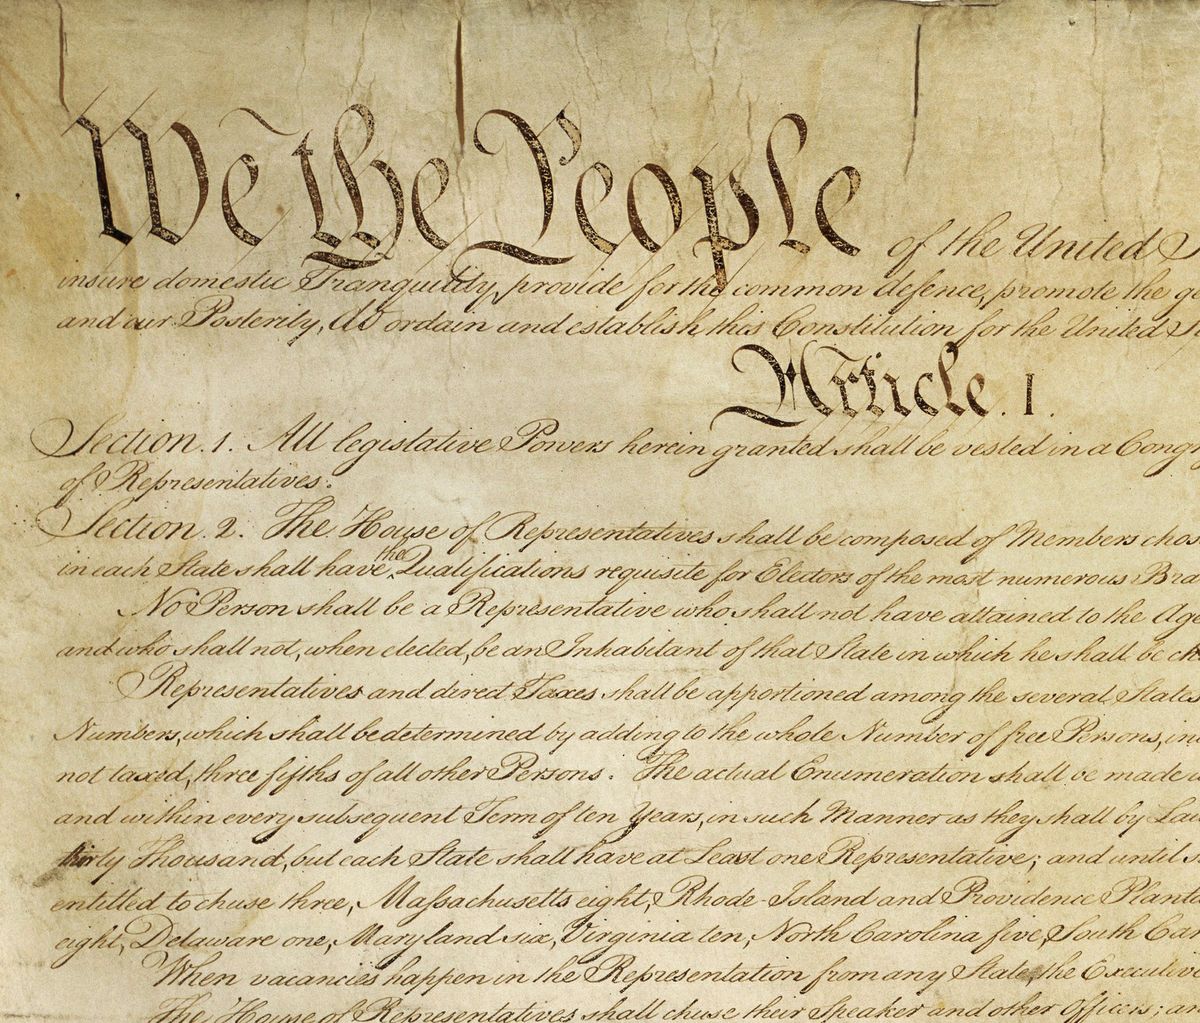 We the People of the United S
insure domestic Tranquility, provide for the common defence, promote the ge
and our Posterity, do ordain and establish this Constitution for the United St
Article. I.
Section. 1. All legislative Powers herein granted shall be vested in a Congr
of Representatives.
Section. 2. The House of Representatives shall be composed of Members chos
in each State shall have the Qualifications requisite for Electors of the most numerous Bra
No Person shall be a Representative who shall not have attained to the Age
and who shall not, when elected, be an Inhabitant of that State in which he shall be ch
Representatives and direct Taxes shall be apportioned among the several States
Numbers, which shall be determined by adding to the whole Number of free Persons, inc
not taxed, three fifths of all other Persons. The actual Enumeration shall be made w
and within every subsequent Term of ten Years, in such Manner as they shall by Law
thirty Thousand, but each State shall have at Least one Representative; and until s
entitled to chuse three, Massachusetts eight, Rhode-Island and Providence Planta
eight, Delaware one, Maryland six, Virginia ten, North Carolina five, South Car
When vacancies happen in the Representation from any State, the Executive
The House of Representatives shall chuse their Speaker and other Officers; an